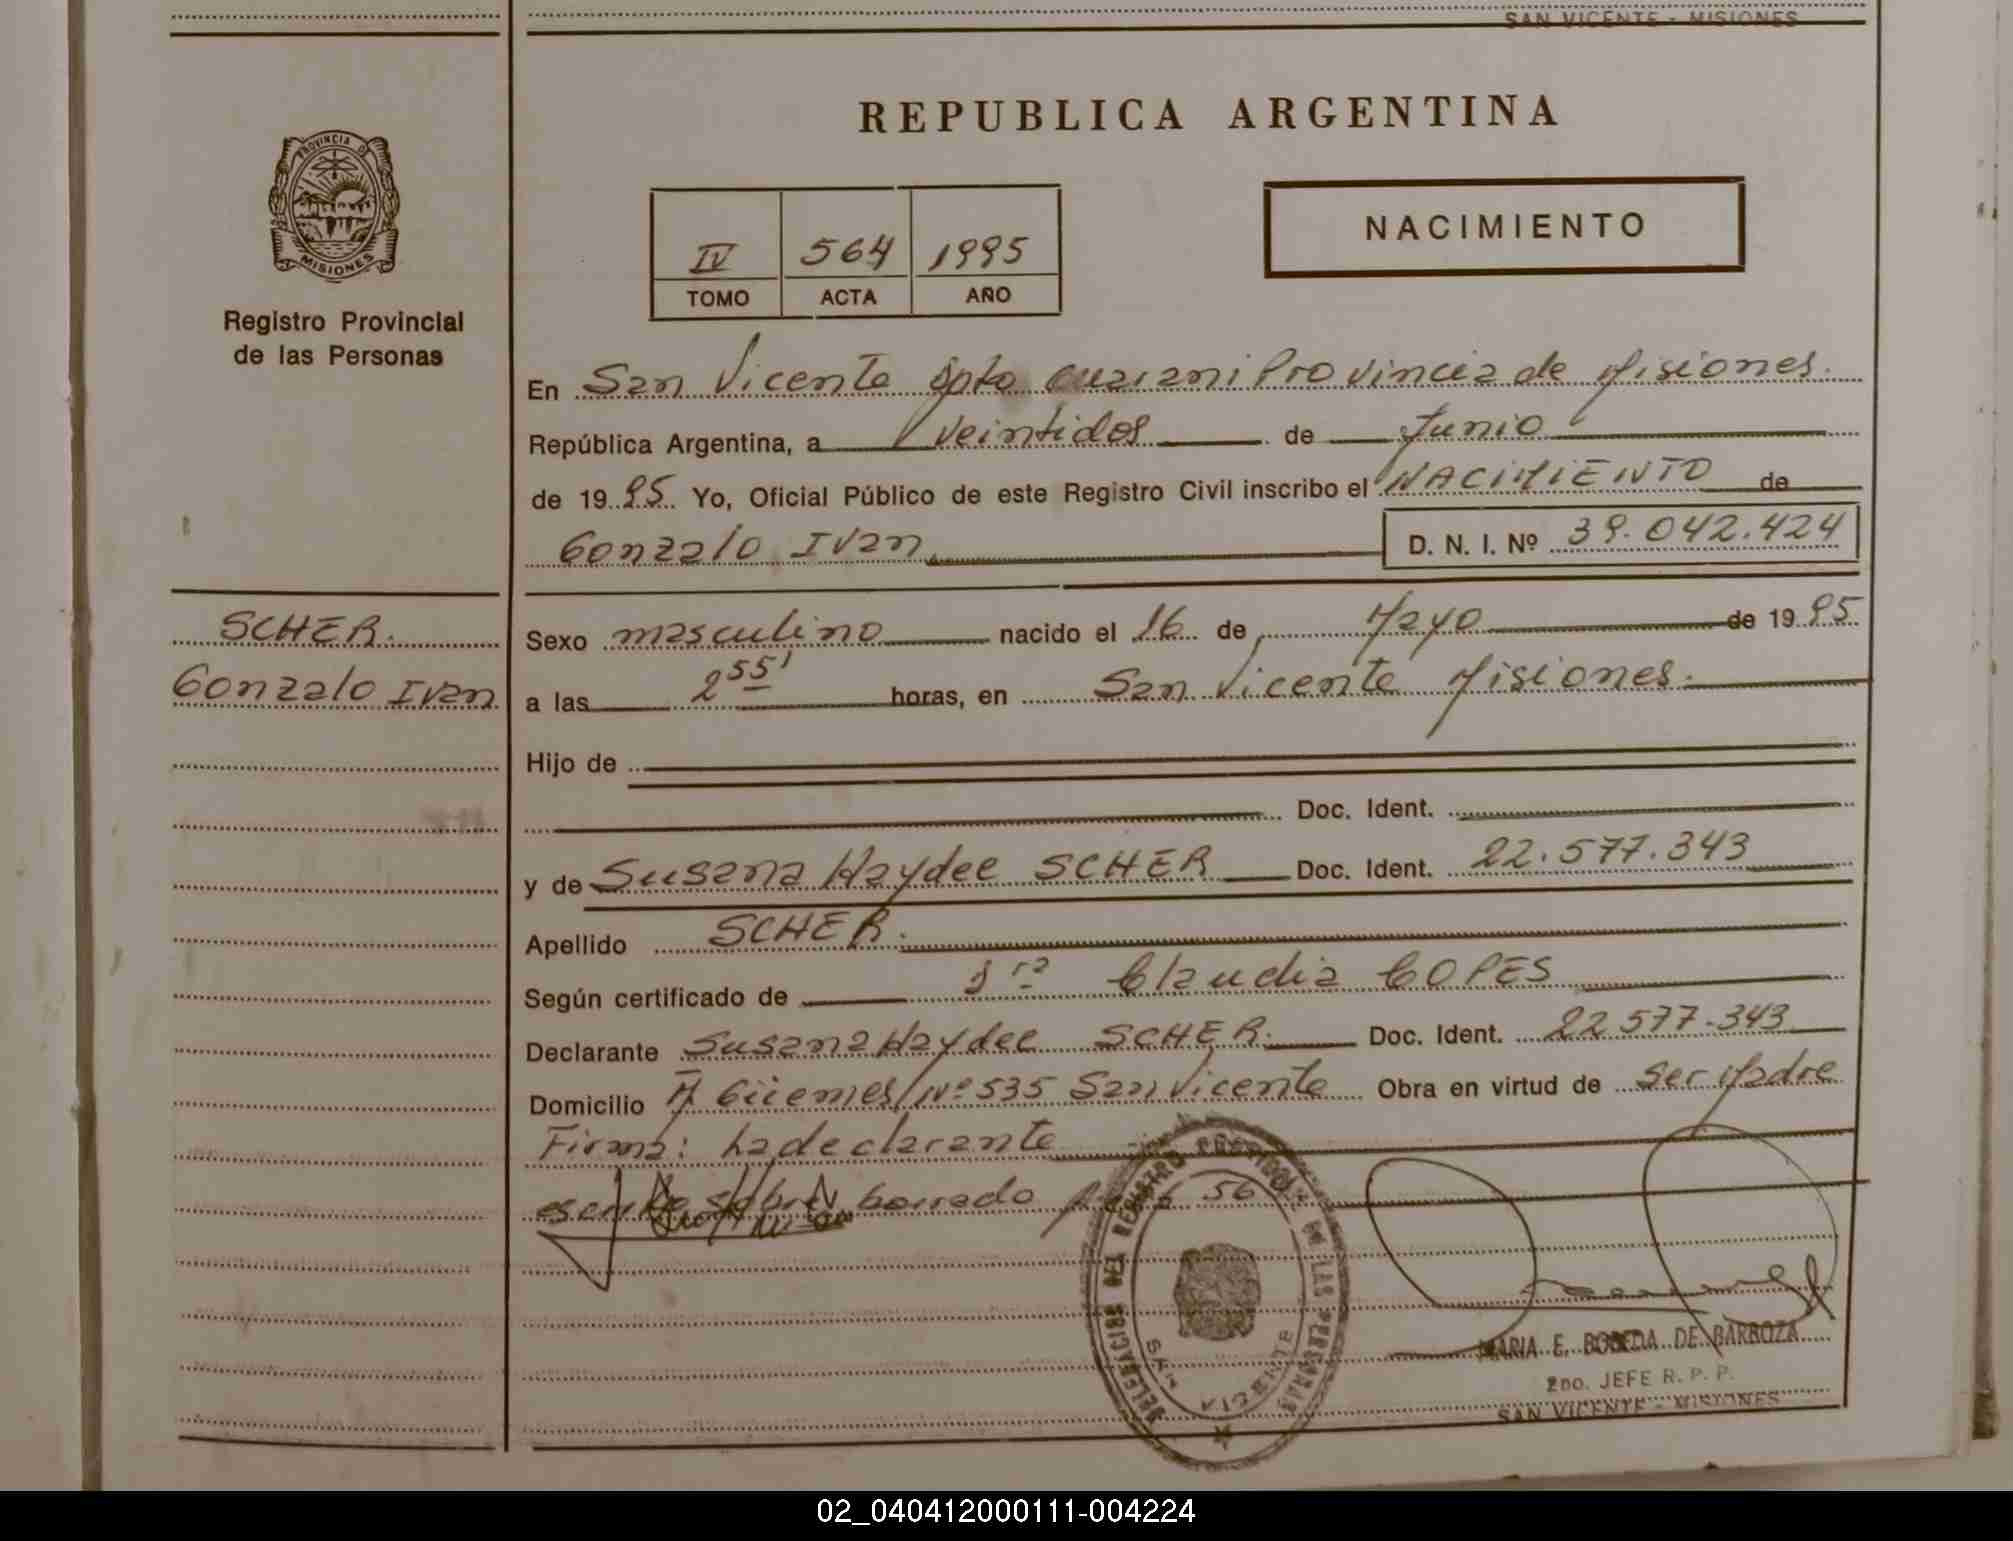 SAN VICENTE - MISIONES
REPUBLICA ARGENTINA
PROVINCIA DE
MISIONES
Registro Provincial
de las Personas
NACIMIENTO
IV 564 1995
TOMO ACTA AÑO
En San Vicente Dpto Guarani Provincia de Misiones.
República Argentina, a veintidos de Junio
de 1995 Yo, Oficial Público de este Registro Civil inscribo el NACIMIENTO de
Gonzalo Ivan D. N. I. Nº 39.042.424
SCHER.
Gonzalo Ivan
Sexo masculino nacido el 16 de Mayo de 1995
a las 2 55' horas, en San Vicente Misiones.
Hijo de
Doc. Ident.
y de Susana Haydee SCHER Doc. Ident. 22.577.343
Apellido SCHER.
Según certificado de Claudia COPES
Declarante Susana Haydee SCHER. Doc. Ident. 22 577.343
Domicilio Güemes Nº 535 San Vicente Obra en virtud de Ser Madre
Firma: La declarante
sobre borrado 56
DELEGACION DEL REGISTRO PROVINCIAL DE LAS PERSONAS
SAN VICENTE
MARIA E. BOBEDA DE BARBOZA
2DO. JEFE R. P. P.
SAN VICENTE - MISIONES
02_040412000111-004224